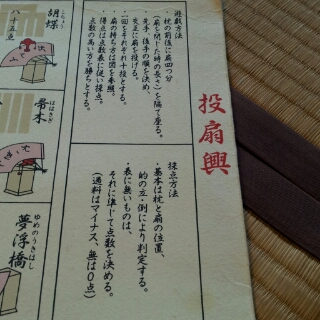 投扇興
遊戯方法
・枕の前後に扇四つ分
(扇を閉じた時の長さ)を隔て座る。
・先手・後手の順を決め、
交互に扇を投げる。
・一回をそれぞれ十投とする。
・扇の持ち方は図を参照。
・得点は点数表に従い採点。
点数の高い方を勝ちとする。
採点方法
・基本は枕と扇の位置、
的の立・倒により判定する。
・表に無いものは、
それに準じて点数を決める。
(過料はマイナス、無は0点)
こちょう
胡蝶
八十五点
ははきぎ
帚木
ゆめのうきはし
夢浮橋